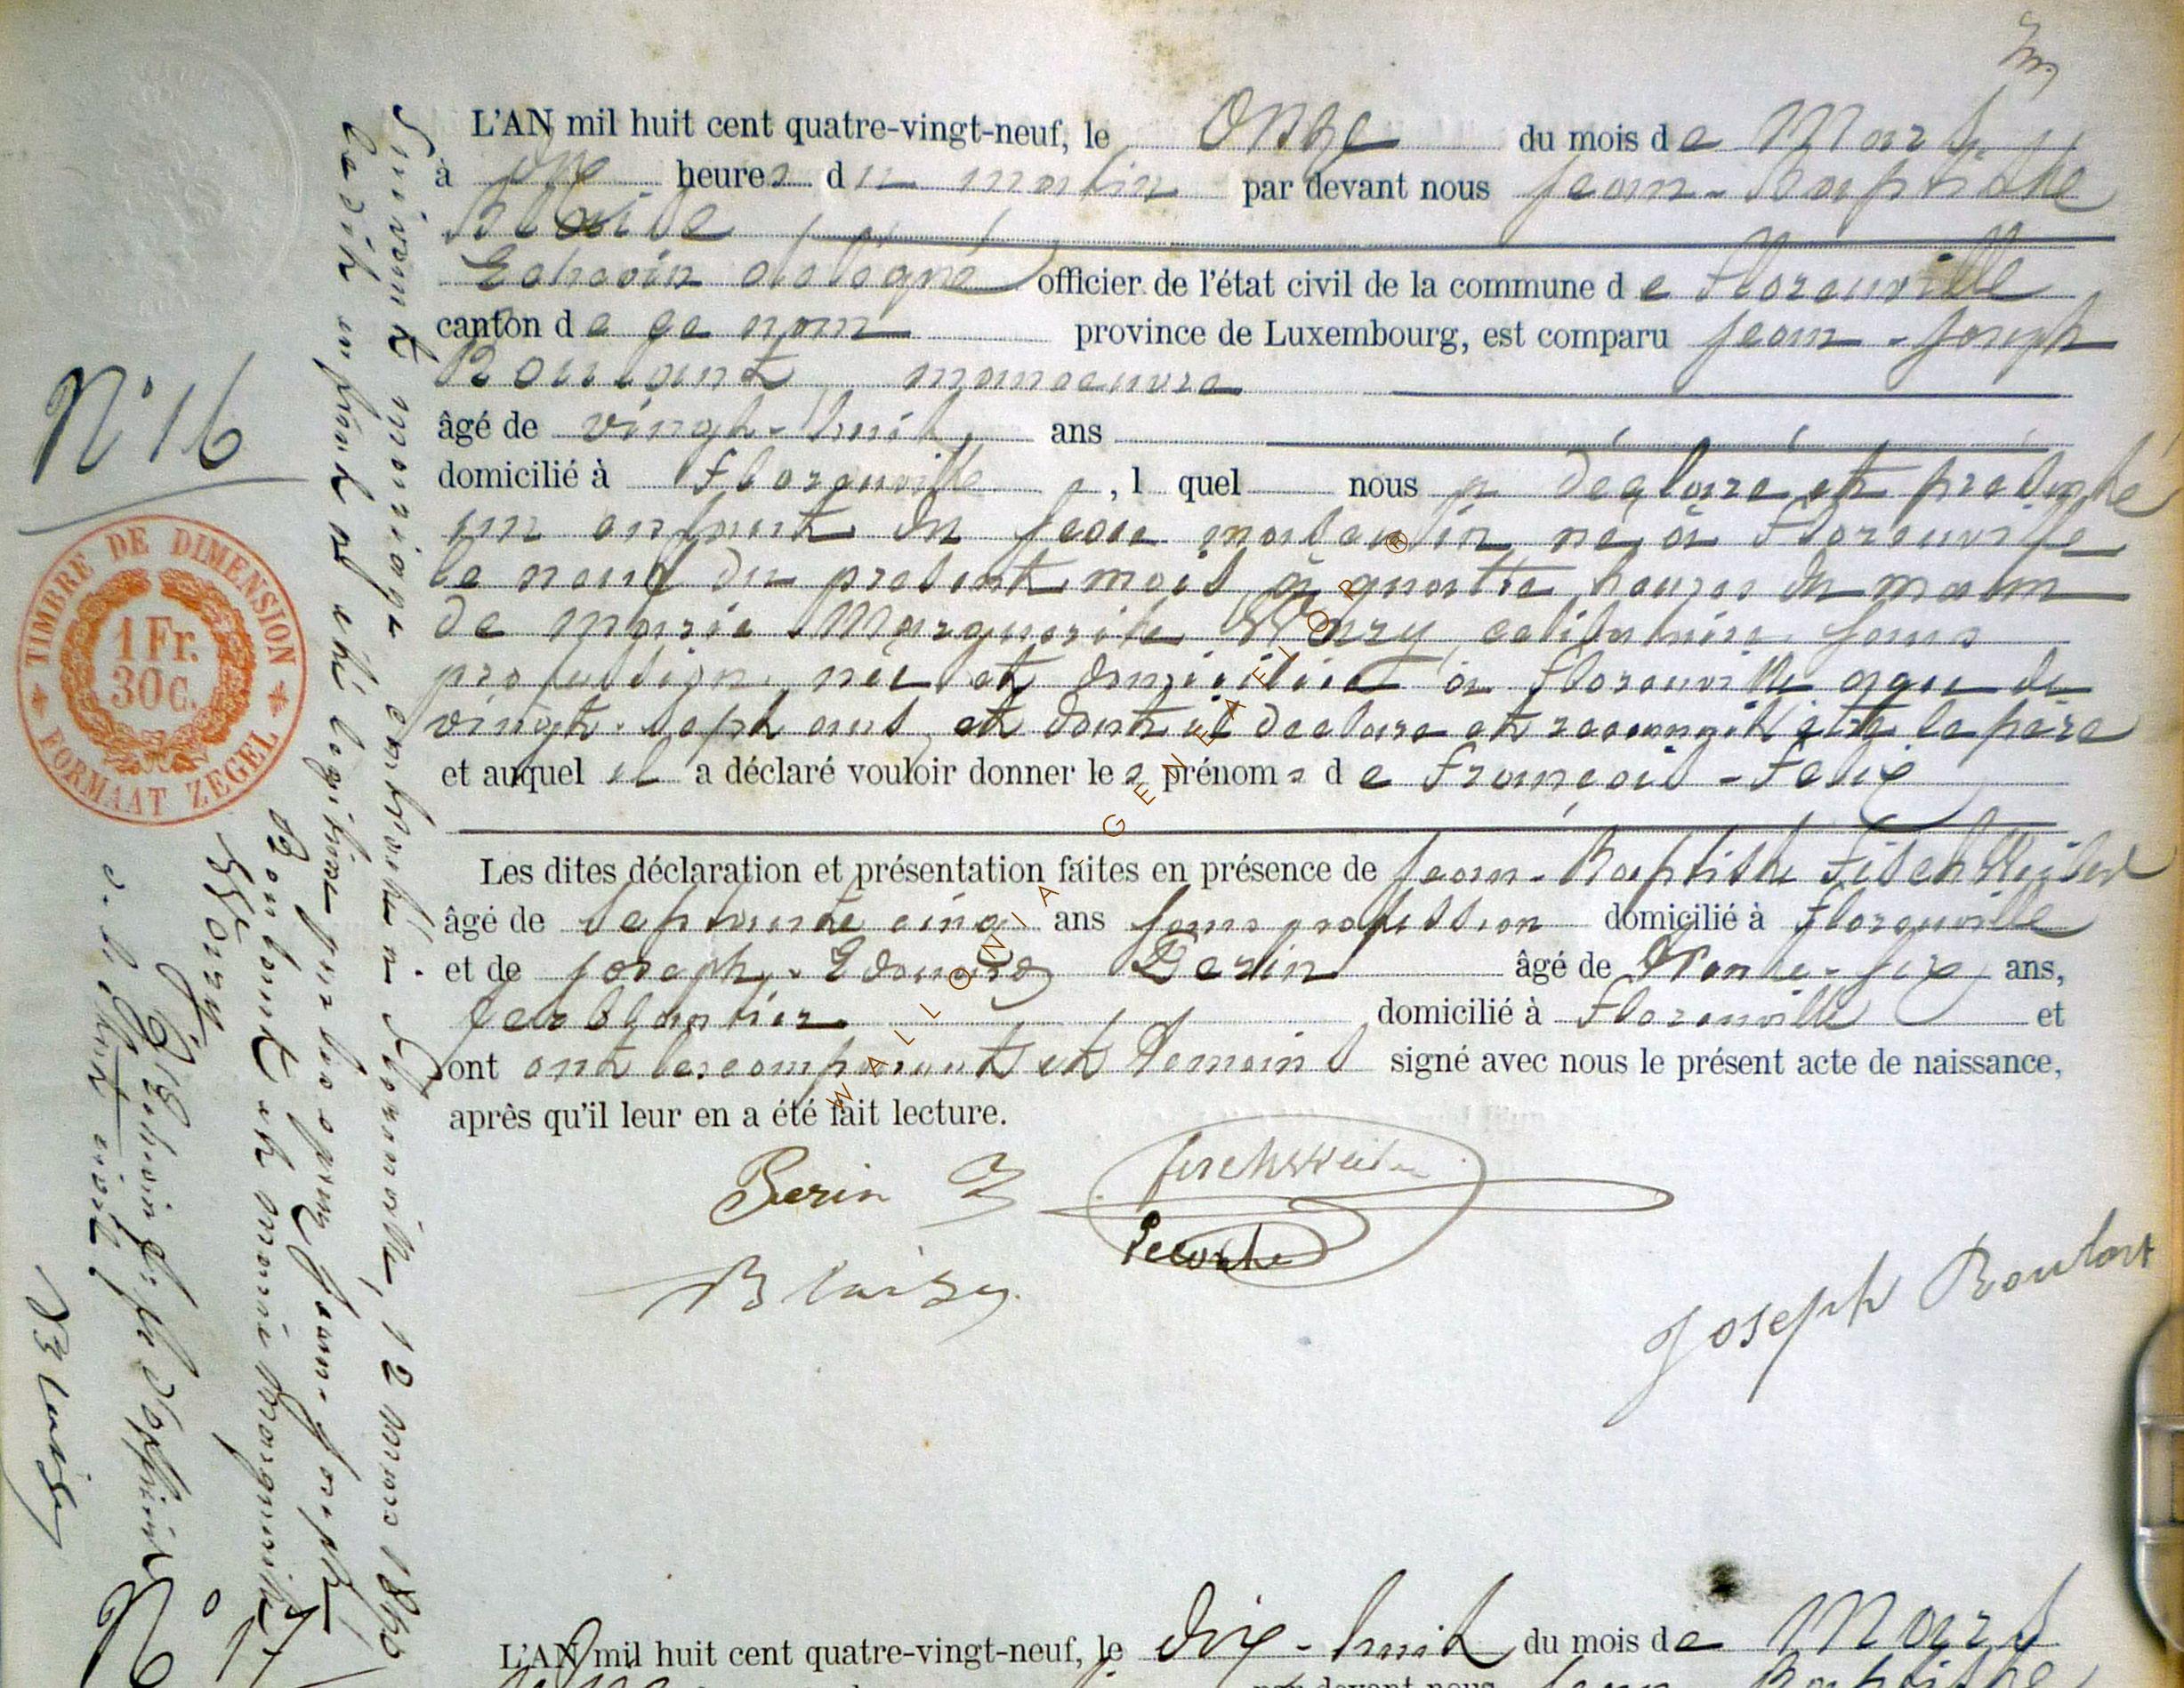 L'AN mil huit cent quatre-vingt-neuf, le Onze du mois de Mars
à dix heures du matin par devant nous Jean-Baptiste
Blaise
Echevin délégué officier de l'état civil de la commune de Florenville
canton de ce nom province de Luxembourg, est comparu Jean-Joseph
Roulant manoeuvre
âgé de vingt-huit ans
domicilié à Florenville, lequel nous a déclaré et présenté
un enfant du sexe masculin né à Florenville
le neuf du présent mois à quatre heures du matin
de Marie Marguerite Woiry, célibataire sans
profession née et domiciliée à Florenville agée de
vingt-sept ans et dont il déclare et reconnait être le père
et auquel il a déclaré vouloir donner les prénoms de François-Felix
Les dites déclaration et présentation faites en présence de Jean-Baptiste Fischweiler
âgé de septante cinq ans sans profession domicilié à Florenville
et de Joseph-Edouard Perin âgé de trente-six ans,
ferblantier domicilié à Florenville et
ont ont les comparant et temoins signé avec nous le présent acte de naissance,
après qu'il leur en a été fait lecture.
Perin
Blaise
Joseph Roulant
N° 16
TIMBRE DE DIMENSION
1 Fr.
30 c.
FORMAAT ZEGEL
Suivant mariage contracté à Florenville, 12 mars 1890
ledit enfant a été légitimé par les époux Jean-Joseph
Roulant et Marie Marguerite
Woiry
L'Echevin
Blaise
N° 17
L'AN mil huit cent quatre-vingt-neuf, le dix-huit du mois de Mars
par devant nous Jean Baptiste
WALLONIA GENEAFLOR ®